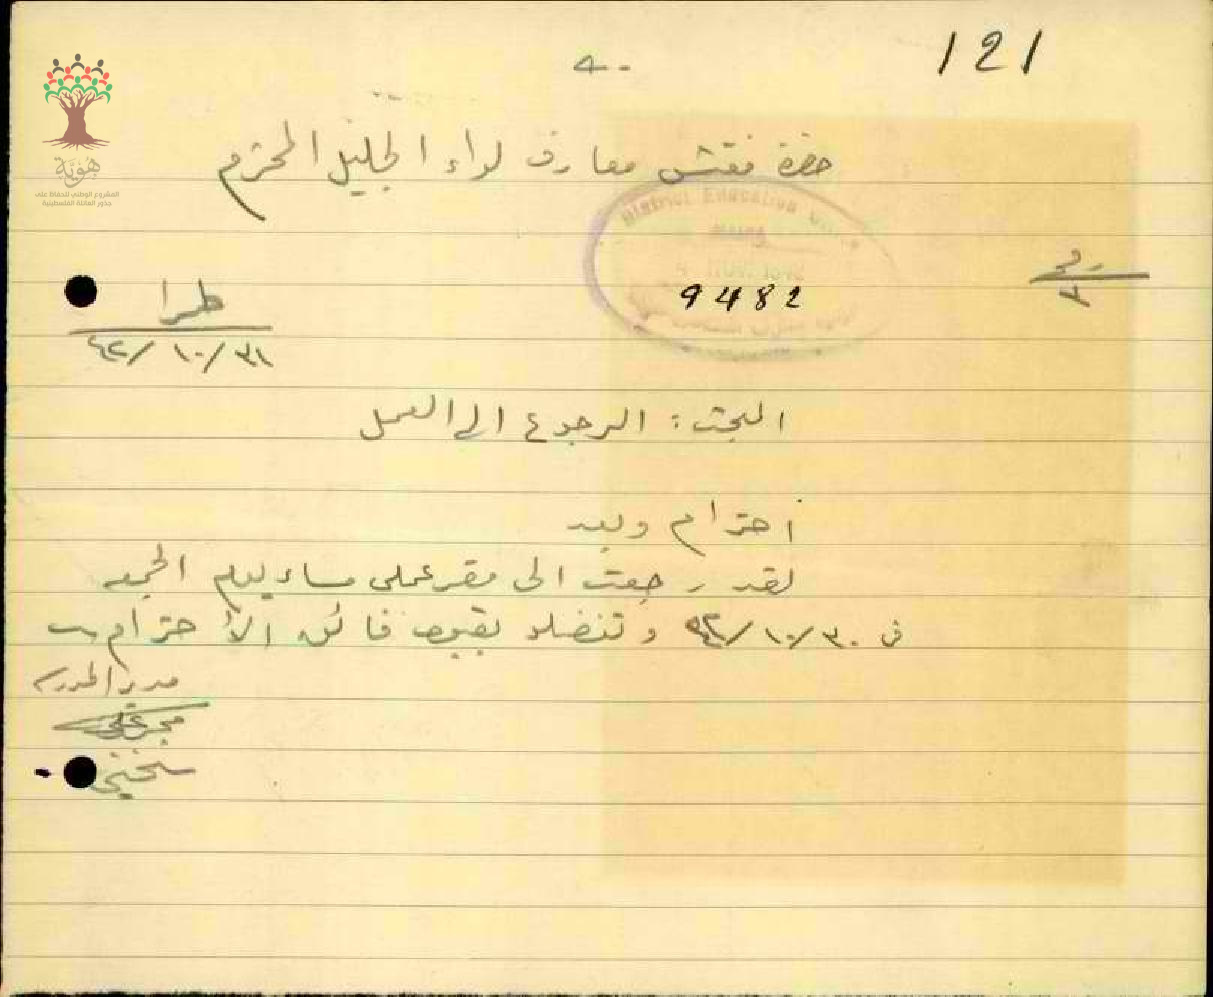 121
هُوِيَّة
المشروع الوطني للحفاظ على
جذور العائلة الفلسطينية
حضرة مفتش معارف لواء الجليل المحترم
District Education
NOV. 1942
رقم
٣
9482
طيرا
٤٢/١٠/٣١
البحث: الرجوع الى العمل
احترام وبعد
لقد رجعت الى مقر عملي مساء يوم الجمعه
في ٤٢/١٠/٣٠ وتفضلو بقبول فائق الأحترام
مدير المدرسه